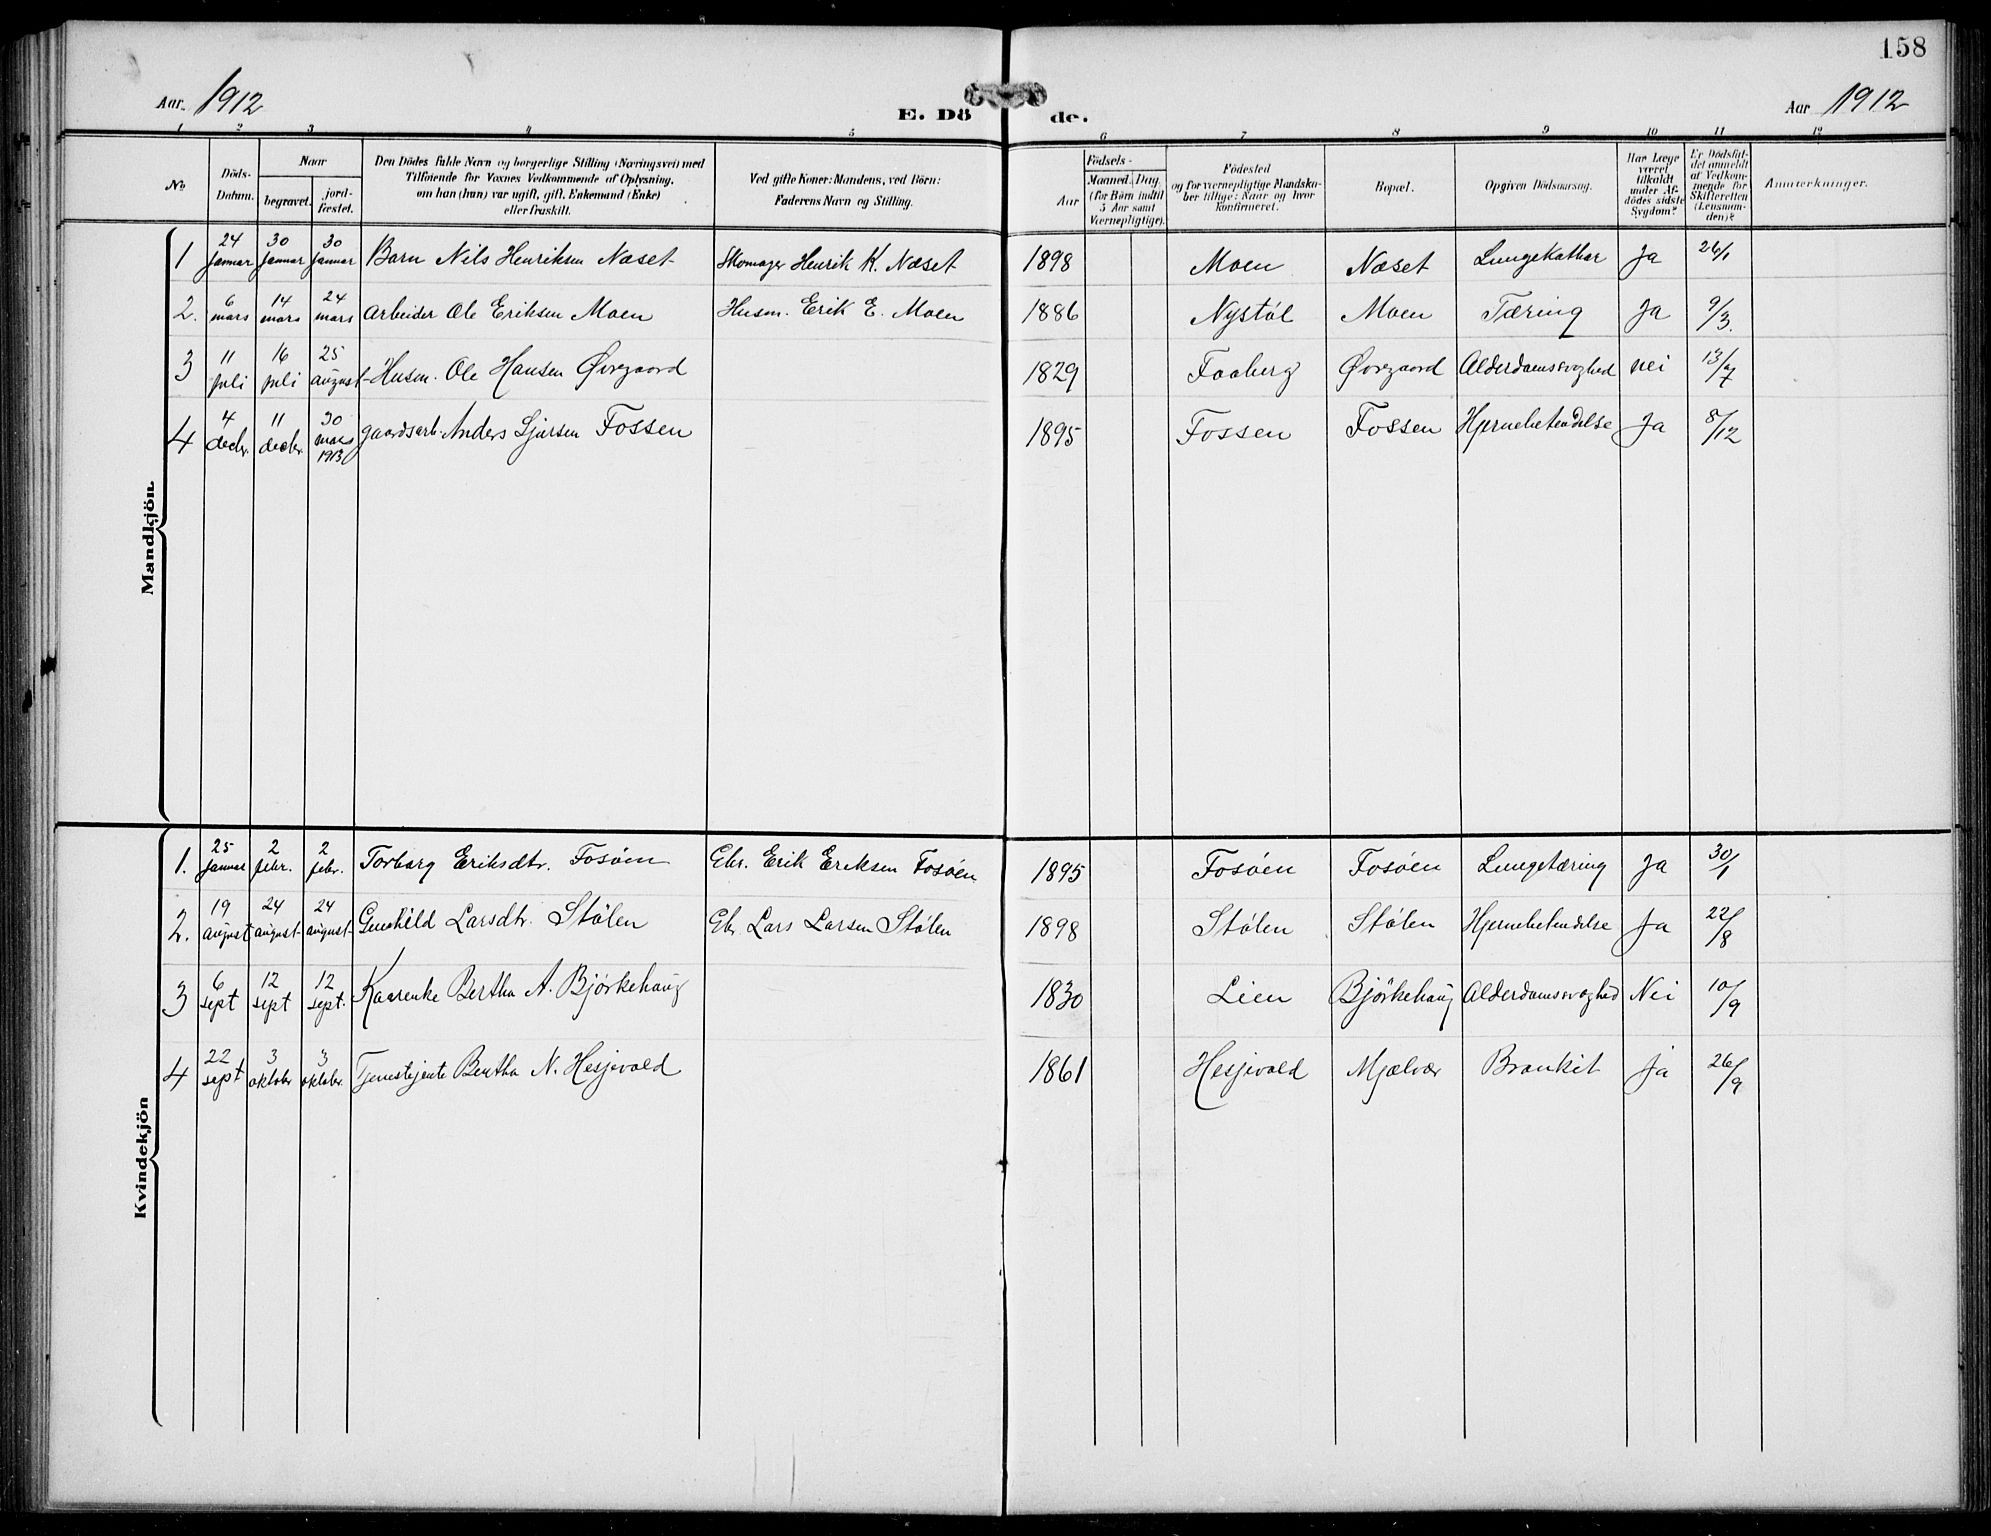 158
Aar 1912
E. Döde.
Aar 1912
1 2 3 4 5 6 7 8 9 10 11 12
No
Döds-Datum.
Naar
begravet.
jord-fæstet.
Den Dödes fulde Navn og borgerlige Stilling (Næringsvei) med
Tilføiende for Voxnes Vedkommende af Oplysning,
om han (hun) var ugift, gift, Enkemand (Enke)
eller fraskilt.
Ved gifte Koner: Mandens, ved Börn:
Faderens Navn og Stilling.
Födsels-
Aar
Maaned. Dag
(for Börn indtil
5 Aar samt
Værnepligtige).
Födested
og for værnepligtige Mandska-
ber tillige: Naar og hvor
konfirmeret.
Bopæl.
Opgiven Dödsaarsag.
Har Læge
været
tilkaldt
under Af-
dödes sidste
Sygdom?
Er Dödsfal-
det anmeldt
af Vedkom-
mende for
Skifteretten
(Lensman-
den)?
Anmærkninger.
Mandkjön.
1 24 Januar 30 Januar 30 Januar Barn Nils Henriksen Næset Skomager Henrik K. Næset 1898 Moen Næset Lungekathar Ja 26/1
2. 6 mars 14 mars 24 mars Arbeider Ole Eriksen Moen Husm. Erik E. Moen 1886 Nystøl Moen Tæring Ja 9/3.
3 11 juli 16 juli 25 august Husm. Ole Hansen Øvregaard 1829 Faaberg Øvregaard Alderdomssvaghed nei 13/7
4 4 decbr. 11 decbr. 30 mars 1913 gaardsarb. Anders Sjursen Fossen 1895 Fossen Fossen Hjernebetendelse Ja 8/12
Kvindekjön
1. 25 Januar 2 febr. 2 febr. Torborg Eriksdtr. Fosøen Gbr. Erik Eriksen Fosøen 1895 Fosøen Fosøen Lungetæring Ja 30/1
2. 19 august 24 august 24 august Gunhild Larsdtr. Stølen Gbr. Lars Larsen Stølen 1898 Stølen Stølen Hjernebetendelse Ja 22/8
3 6 sept 12 sept 12 sept. Kaarenke Bertha A. Bjørkehaug 1830 Lien Bjørkehaug Alderdomssvaghed Nei 10/9
4 22 sept 3 oktober 3 oktober. Tjenestejente Bertha N. Hesjevold 1861 Hesjevold Mjelvær Bronkit Ja 26/9